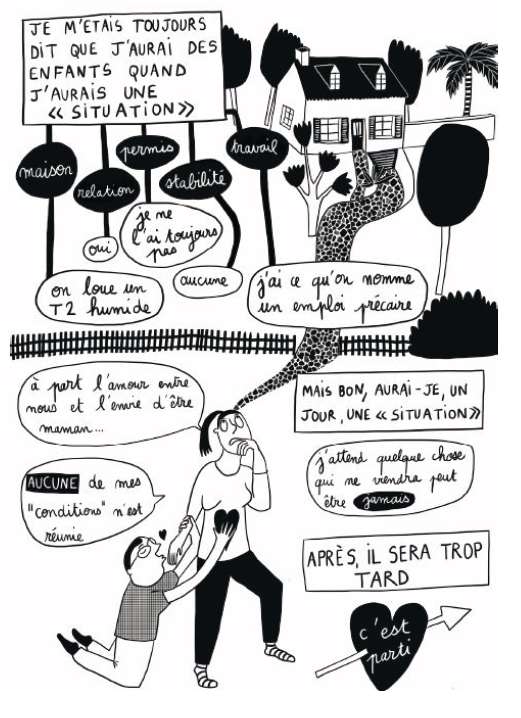 JE M'ETAIS TOUJOURS
DIT QUE J'AURAI DES
ENFANTS QUAND
J'AURAIS UNE
« SITUATION »
maison
relation
permis
stabilité
travail
oui
je ne
l'ai toujours
pas
aucune
on loue un
T2 humide
j'ai ce qu'on nomme
un emploi précaire
à part l'amour entre
nous et l'envie d'être
maman...
MAIS BON, AURAI-JE, UN
JOUR, UNE « SITUATION »
j'attend quelque chose
qui ne viendra peut
être jamais
AUCUNE de mes
"conditions" n'est
réunie
APRÈS, IL SERA TROP
TARD
c'est
parti